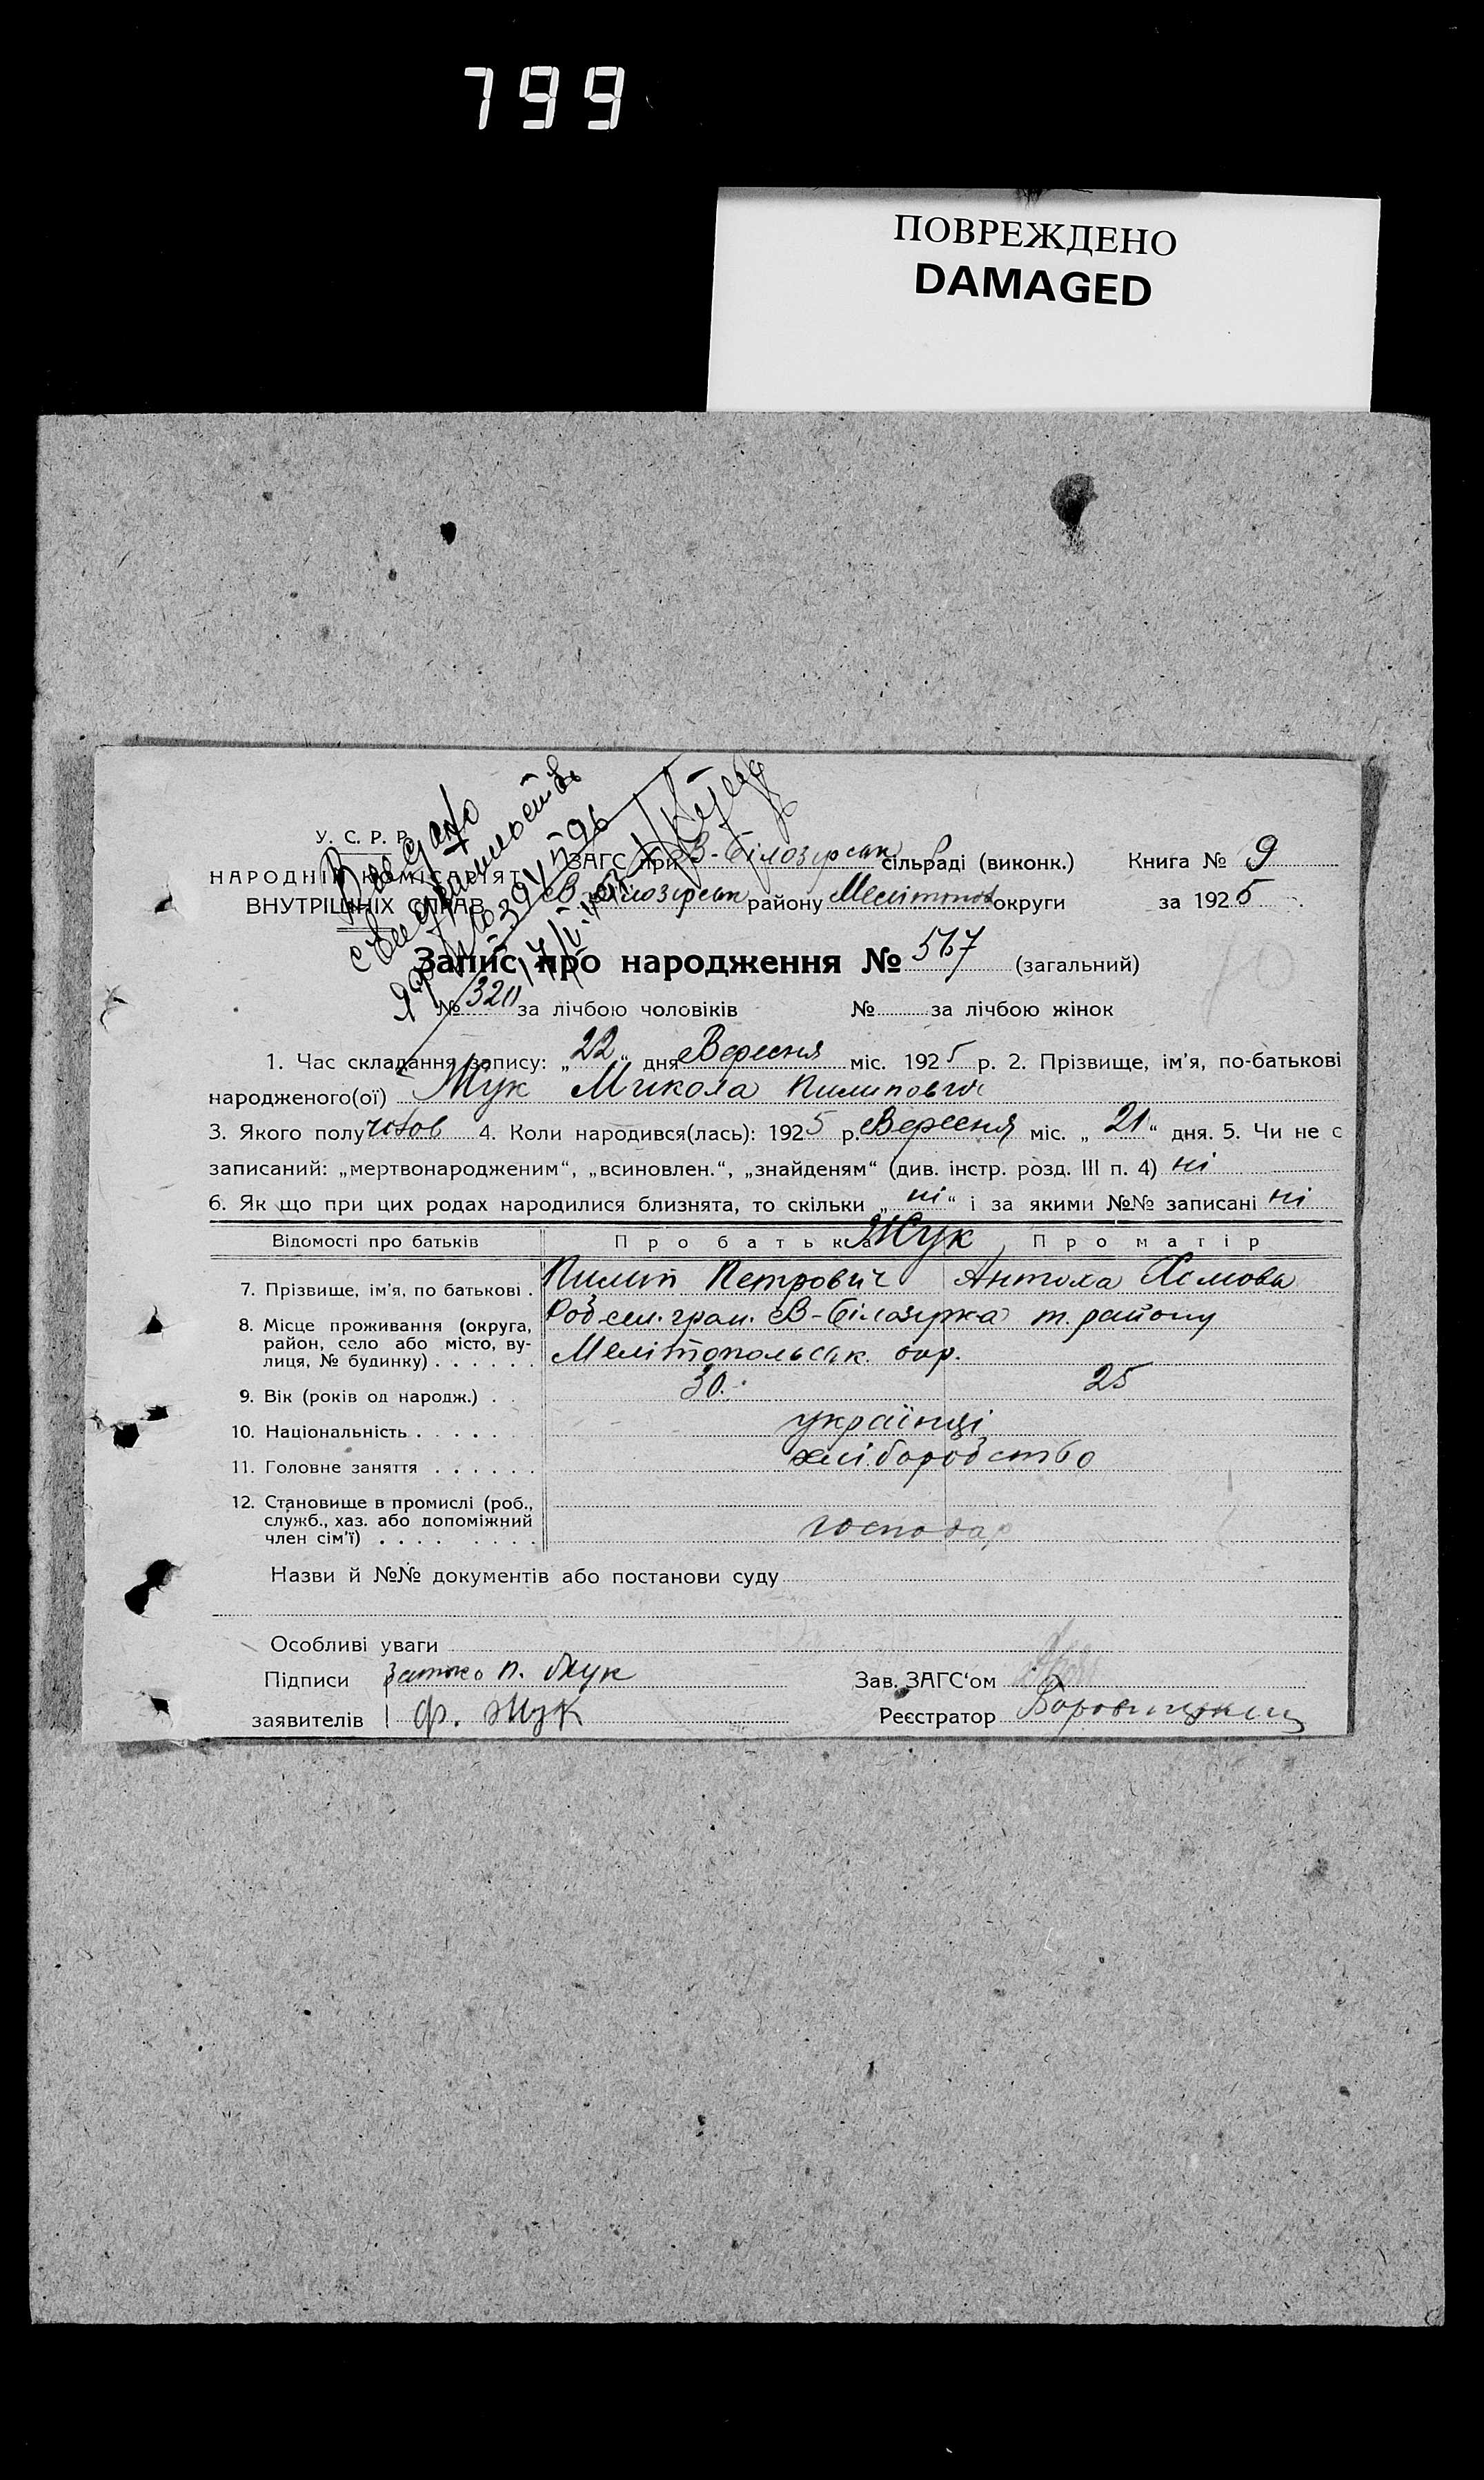 799
ПОВРЕЖДЕНО
DAMAGED
Выдано
свидетельство
У. С. Р. Р.
НАРОДНІЙ КОМІСАРІЯТ
ВНУТРІШНІХ СПРАВ
ЗАГС при В-Білозірськ сільраді (виконк.) Книга № 9
В-Білозірськ району Мелітопол округи за 1925
Запис про народження № 567 (загальний)
№ 320 за лічбою чоловіків № за лічбою жінок
1. Час складання запису: „22“ дня Вересня міс. 1925 р. 2. Прізвище, ім’я, по-батькові
народженого(ої) Жук Микола Пилипович
3. Якого полу чолов 4. Коли народився(лась): 1925 р. Вересня міс. „21“ дня. 5. Чи не є
записаний: „мертвонародженим“, „всиновлен.“, „знайденям“ (див. інстр. розд. III п. 4) ні
6. Як що при цих родах народилися близнята, то скільки „ні“ і за якими №№ записані ні
Відомості про батьків Про батька Жук Про матір
7. Прізвище, ім’я, по батькові . Пилип Петрович Антоха
8. Місце проживання (округа, район, село або місто, вулиця, № будинку) . . . . . . В-Білозірка т. району
Мелітопольськ. окр.
9. Вік (років од народж.) . . 30. 25
10. Національність . . . . . . українці
11. Головне заняття . . . . . . хліборобство
12. Становище в промислі (роб.,
служб., хаз. або допоміжний
член сім’ї) . . . . . . . . господар
Назви й №№ документів або постанови суду
Особливі уваги
Підписи П. Жук Зав. ЗАГС‘ом
заявителів Ф. Жук Реєстратор